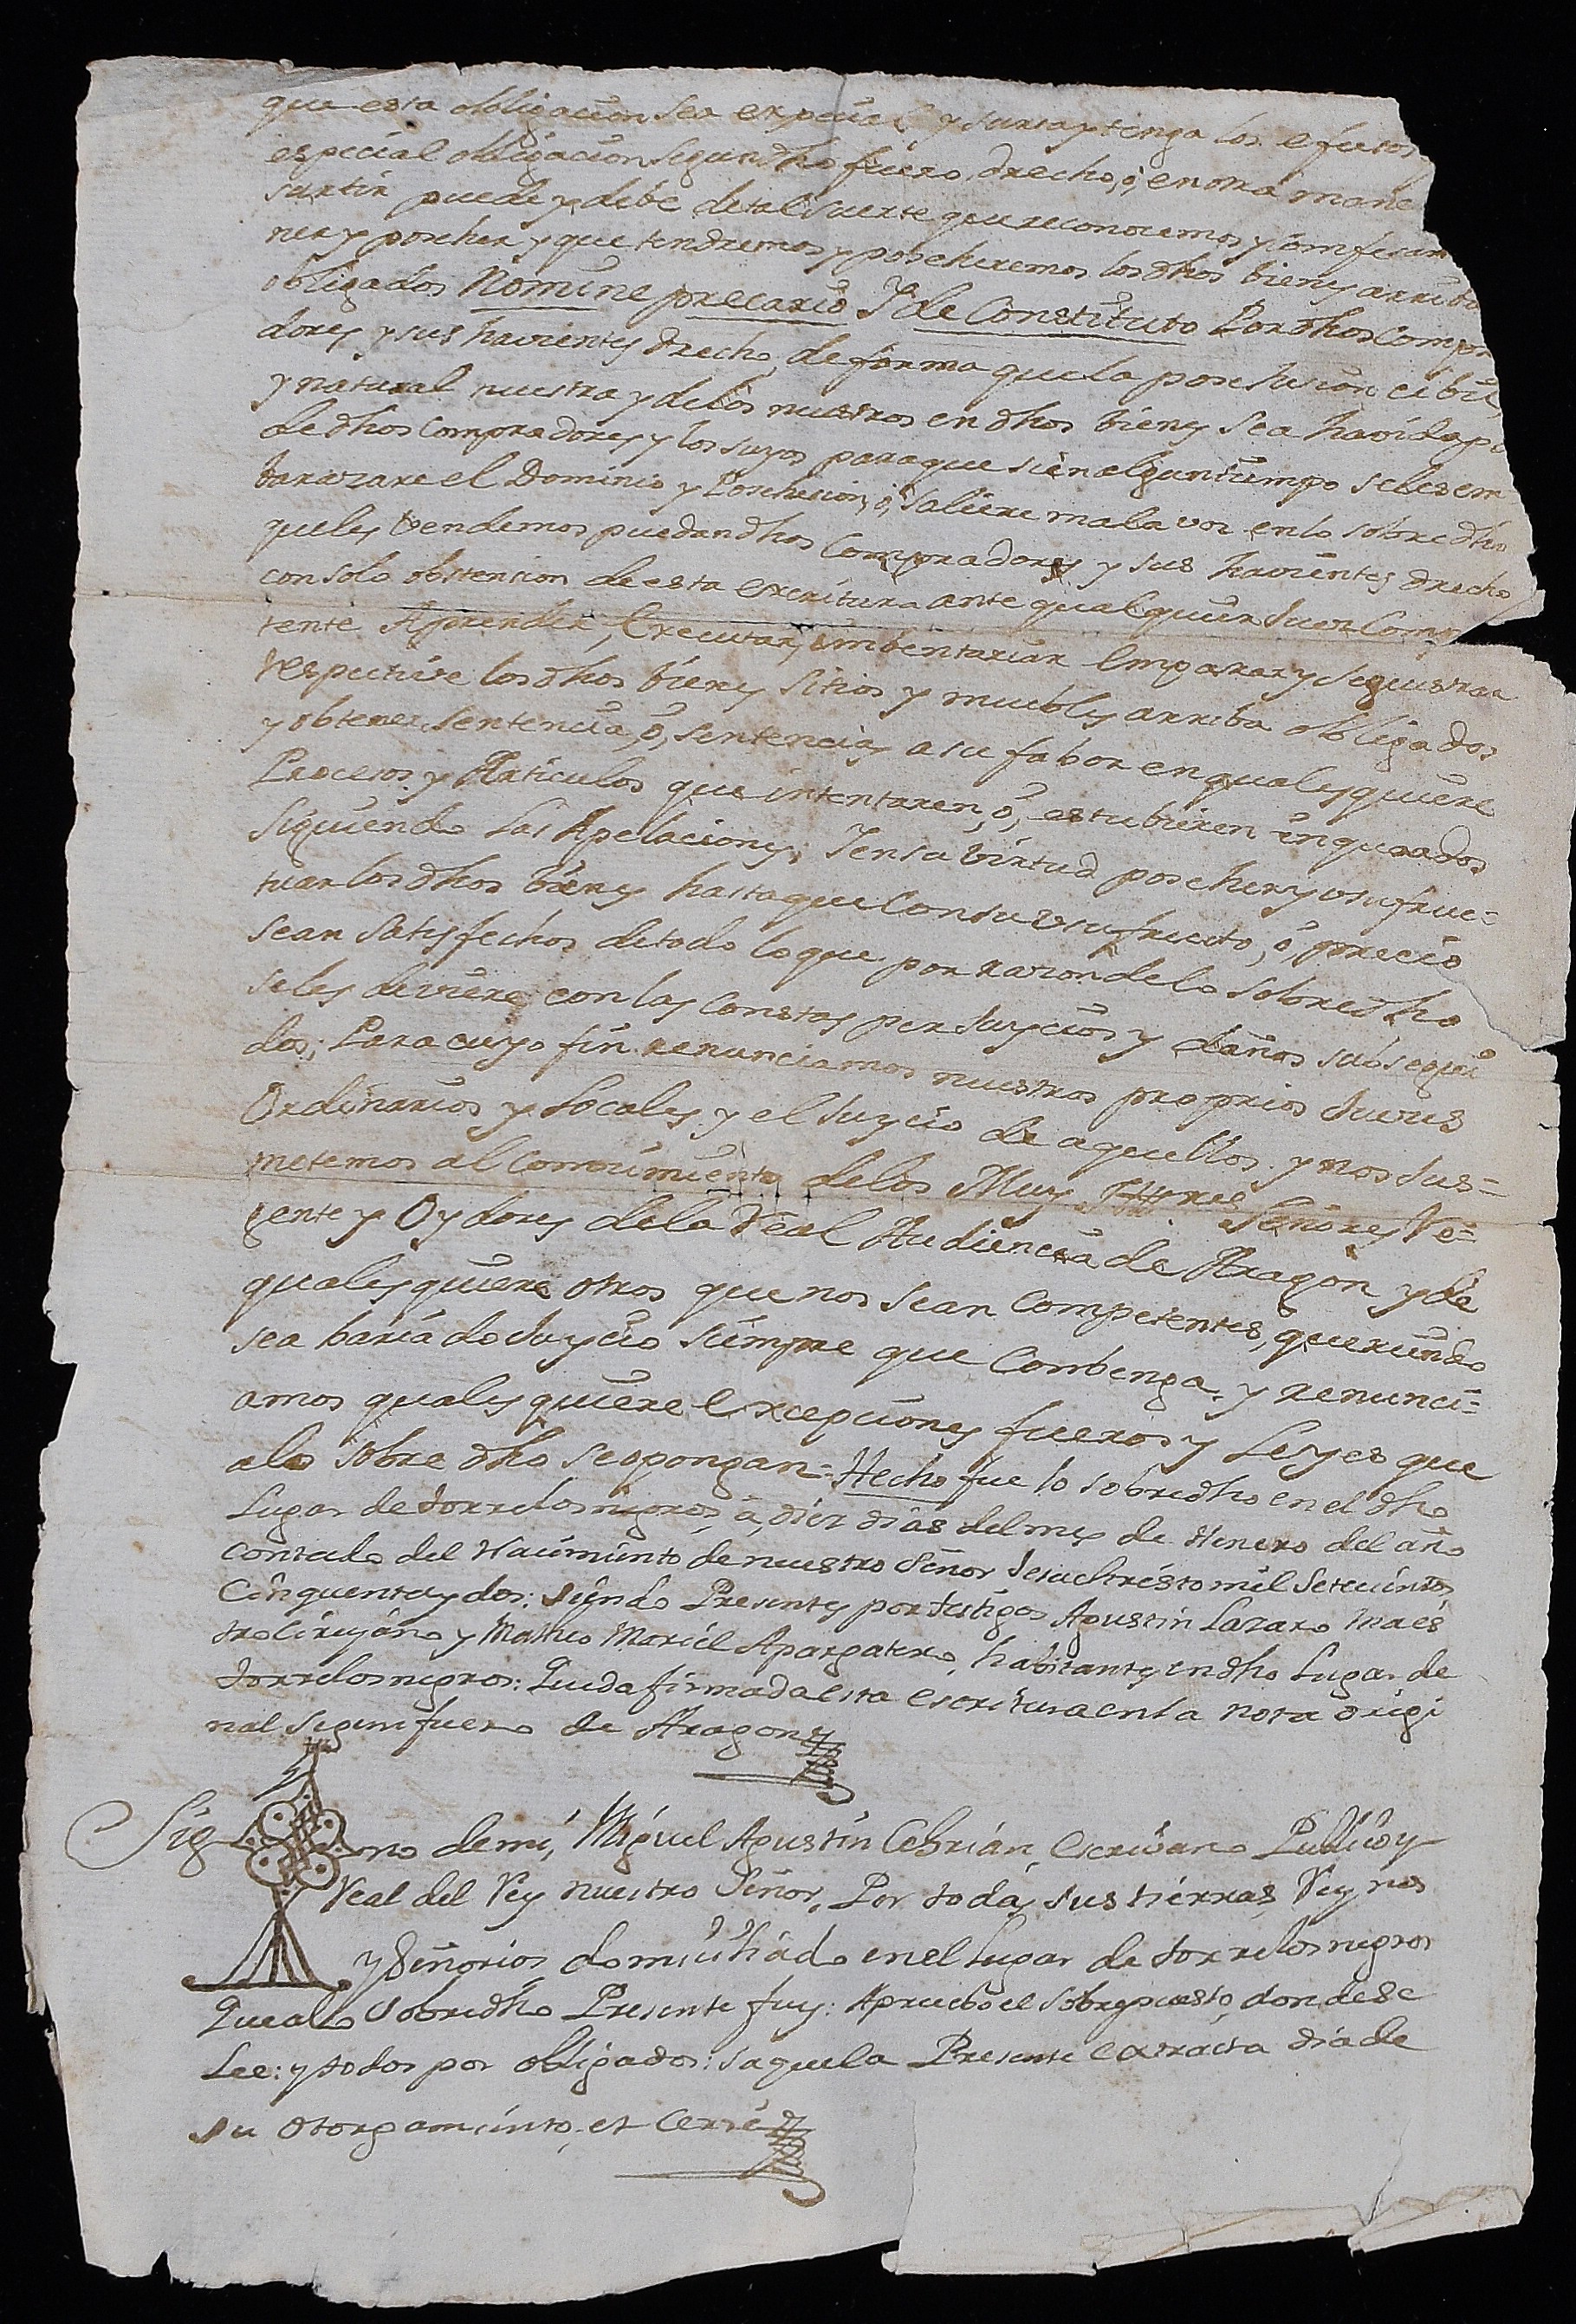 que esta obligacion sea expecial y surta y tenga los efectos
especial obligacion segun dho fuero, drecho, ó, en otra mane
surtir puede y debe de tal suerte que reconocemos y comfesam
ner y poseher y que tendremos y poseheremos los dhos bienes arriba
obligados Nomine precario Y de Constituto Por dhos Compra
dores y sus havientes drecho, de forma que la posesion cibil
y natural nuestra y delos nuestros en dhos bienes sea havida po
de dhos Compradores y los suyos para que si en algun tiempo seles em
barazare el Dominio y Posehesion, ó, saliere mala voz en lo sobre dho
que les vendemos puedan dhos Compradores y sus havientes drecho
con sola obstension de esta escritura ante qualquier Juez Compe
tente Aprender, Executar, imbentariar Emparar y sequestrar
respective los dhos bienes sitios y muebles arriba obligados
y obtener sentencia, ó, sentencias a su fabor en qualesquiere
Procesos y Articulos que intentaren, ó, estubieren incoados
siguiendo las Apelaciones; Y en su virtud poseher y usufruc=
tuar los dhos bienes hasta que con su usufructo, ó, precio
sean satisfechos de todo lo que por razon de lo sobredho
seles deviere con las Constas perjuycios y daños subsegui
dos; Para cuyo fin renunciamos nuestros proprios Jueces
Ordinarios y Locales y el Juycio de aquellos y nos sus=
metemos al Conocimiento delos Muy Iltres Señores Re=
gente y Oydores dela Real Audiencia de Aragon y de
qualesquiere otros que nos sean Competentes, queriendo
sea bariado Juycio siempre que Combenga. y renunci=
amos qualesquiere excepciones fueros y Leyes que
alo sobre dho se opongan = Hecho fue lo sobredho en el dho
Lugar de torrelosnegros á, diez dias del mes de Henero del año
Contado del Nacimiento de nuestro Señor Jesuchristo mil setecientos
Cinquenta y dos: siendo Presentes por testigos Agustin Lazaro Maes
tro Cirujano y Matheo Moriel Alpargatero, habitantes en dho Lugar de
torrelosnegros: Queda firmada esta escritura en la nota origi
nal segun fuero de Aragon
Sig no de mi, Miguel Agustin Cebrian, Escrivano Publico y
Real del Rey nuestro Señor, Por todas sus tierras Reynos
y Señorios domiciliado en el Lugar de torrelosnegros
Que alo sobredho Presente fuy: Apruebo el sobrepuesto donde se
Lee: y todos por obligados: saque la Presente extracta dia de
su otorgamiento, et Cerré